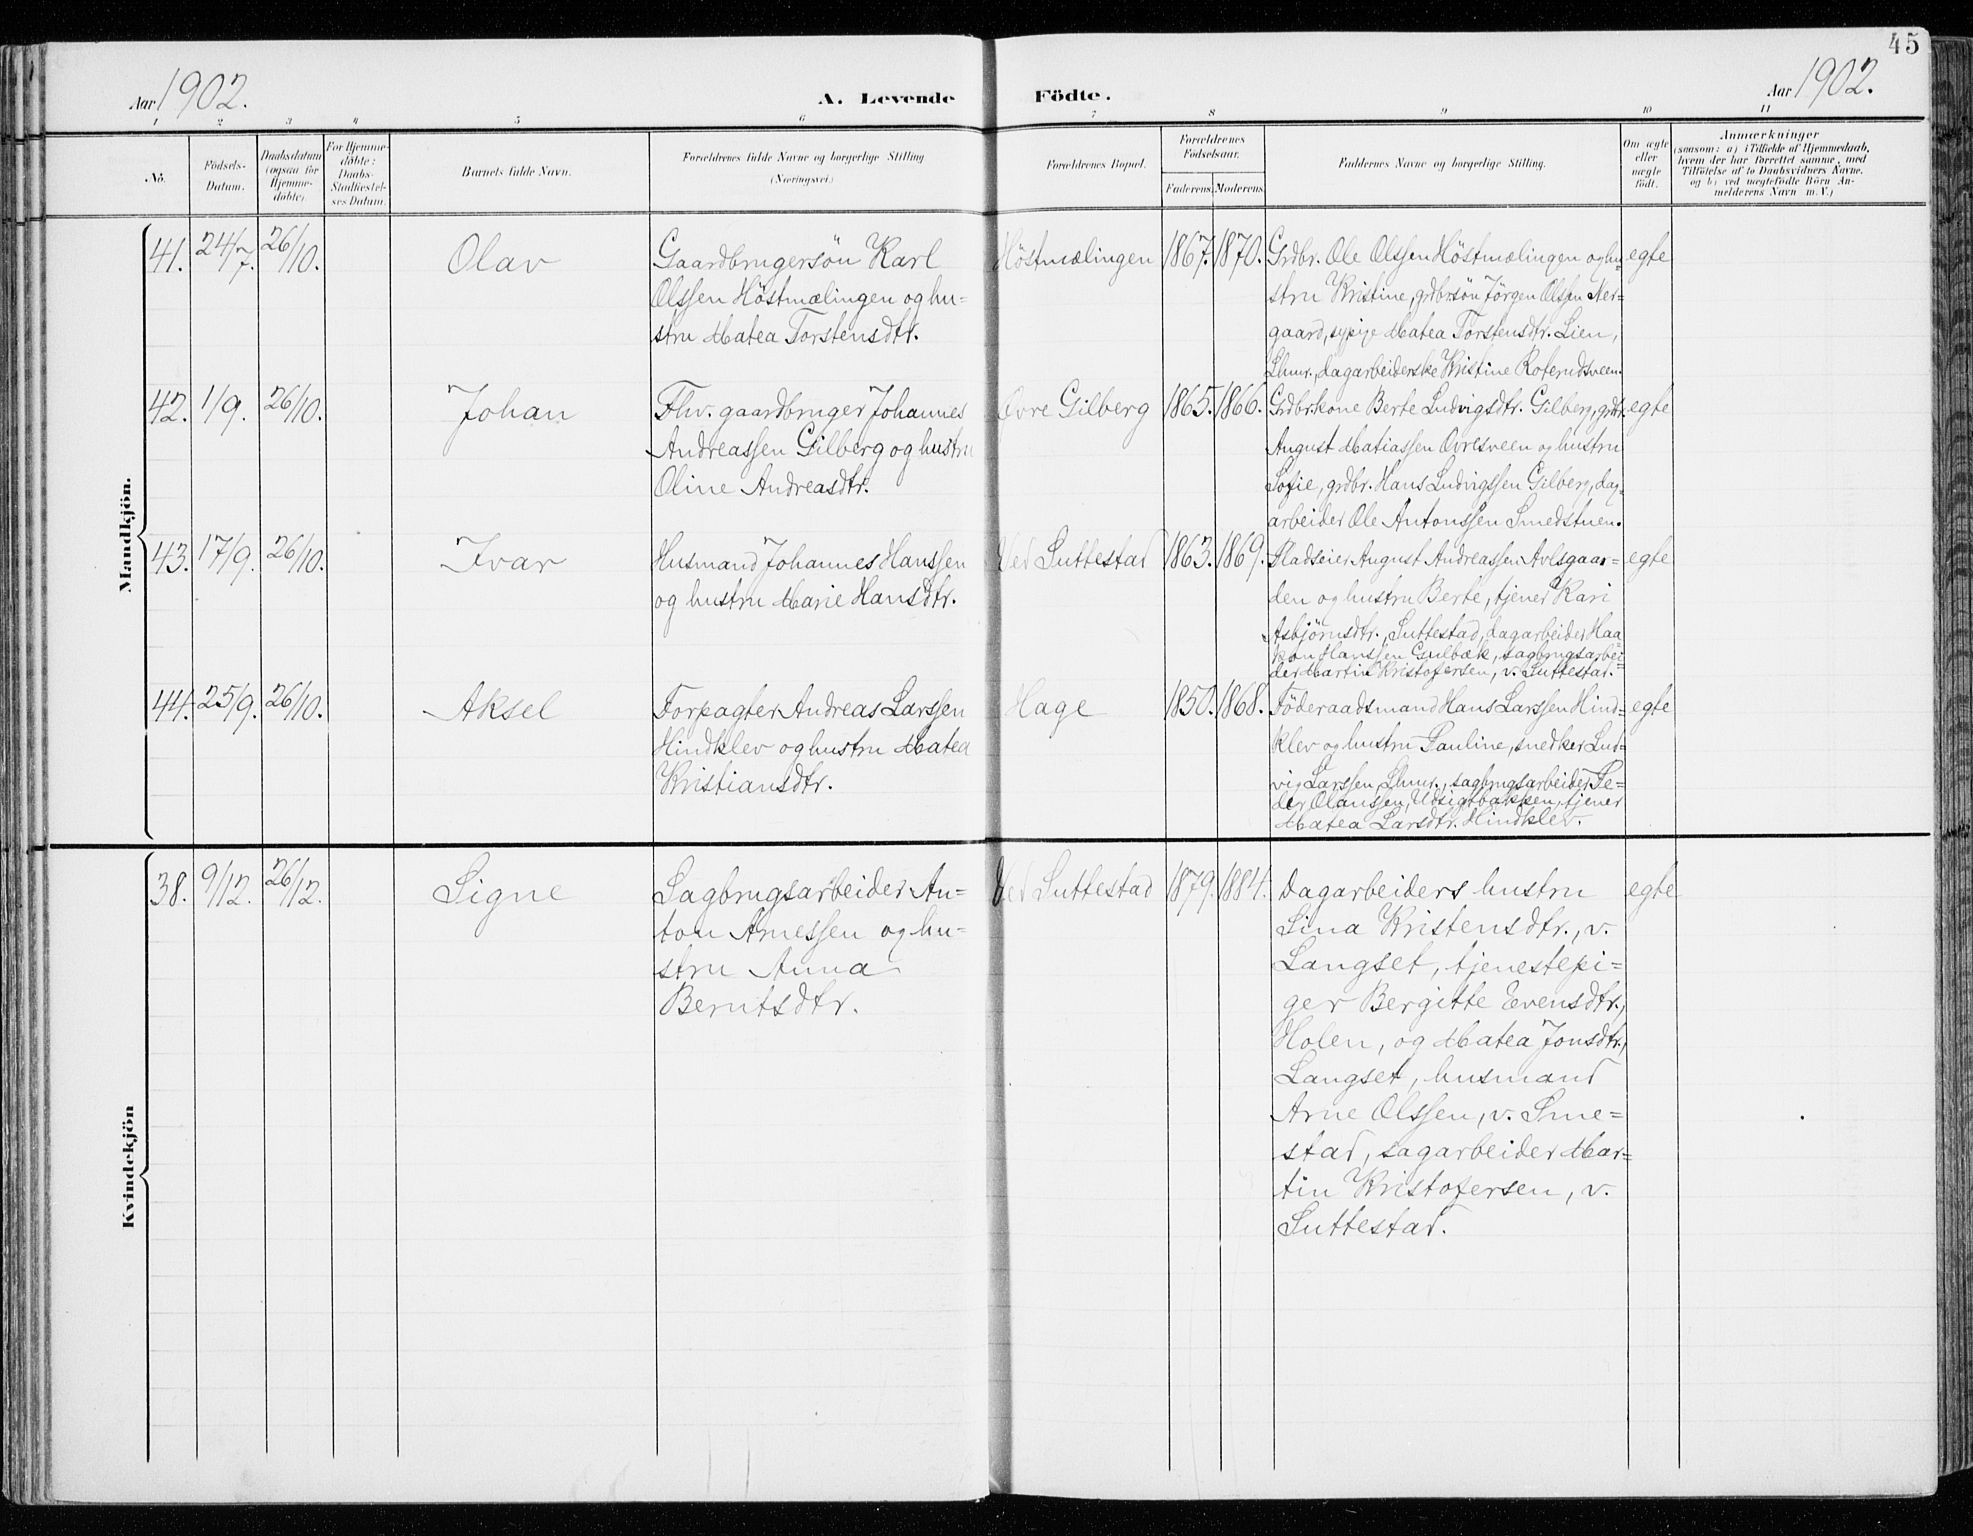 45
Aar 1902.
A. Levende Födte.
Aar 1902.
1 2 3 4 5 6 7 8 9 10 11
No.
Födsels-
Datum.
Daabsdatum
(ogsaa for
Hjemme-
döbte).
For Hjemme-
döbte:
Daabs-
Stadfæstel-
ses Datum.
Barnets fulde Navn.
Forældrenes fulde Navne og borgerlige Stilling
(Næringsvei.)
Forældrenes Bopæl.
Forældrenes
Födselsaar.
Faderens. Moderens.
Faddernes Navne og borgerlige Stilling.
Om ægte
eller
uægte
födt.
Anmærkninger
(saasom: a) i Tilfælde af Hjemmedaab,
hvem der har forrettet samme, med
Tilföielse af to Daabsvidners Navne.
og b) ved uægtefödte Börn An-
melderens Navn m. V.)
Mandkjön.
41. 24/7. 26/10. Olav
Gaardbrugersön Karl
Olssen Höstmælingen og hu-
stru Matea Torstensdtr.
Höstmælingen 1867. 1870.
Grdbr. Ole Olssen Höstmælingen og hu-
stru Kristine, grdbrsön Jörgen Olssen Ner-
gaard, sypige Matea Torstensdtr. Lien,
Lhmr., dagarbeiderske Kristine Roterudsveen.
egte
42. 1/9. 26/10. Johan
Fhv. gaardbruger Johannes
Andreassen Gilberg og hustru
Oline Andreasdtr.
Övre Gilberg 1865. 1866.
Grdbr.kone Berte Ludvigsdtr. Gilberg, grdbr.
August Matiassen Ovresveen og hustru
Sofie, grdbr. Hans Ludvigssen Gilberg, dag-
arbeider Ole Antonssen Smedstuen.
egte
43. 17/9. 26/10. Ivar
Husmand Johannes Hanssen
og hustru Marie Hansdtr.
Ved Suttestad 1863. 1869.
Pladseier August Andreassen Avlsgaar-
den og hustru Berte, tjener Kari
Asbjörnsdtr., Suttestad, dagarbeider Haa-
kon Hanssen Gulbæk, sagbrugsarbei-
der Martin Kristofersen, v. Suttestad.
egte
44. 25/9. 26/10. Aksel
Forpagter Andreas Larssen
Hindklev og hustru Matea
Kristiansdtr.
Hage 1850. 1868.
Föderaadsmand Hans Larssen Hind-
klev og hustru Pauline, snedker Lud-
vig Larssen, Lhmr., sagbrugsarbeider Pe-
der Olanssen, Udsigtbakken, tjener
Matea Larsdtr. Hindklev.
egte
Kvindekjön
38. 9/12. 26/12. Signe
Sagbrugsarbeider An-
ton Arnessen og hu-
stru Anna
Berntsdtr.
Ved Suttestad 1879. 1884.
Dagarbeiders hustru
Sina Kristensdtr., v.
Langset, tjenestepi-
ger Bergitte Evensdtr.,
Holen, og Matea Jonsdtr.,
Langset, husmand
Arne Olssen, v. Sme-
stad, sagarbeider Mar-
tin Kristofersen, v.
Suttestad.
egte